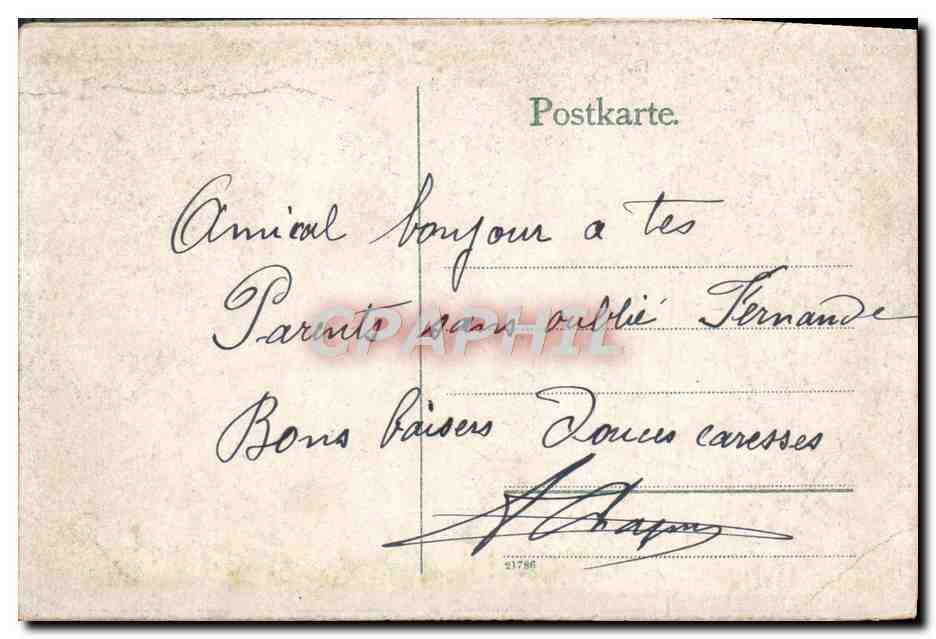 Postkarte.
Amical bonjour a tes
Parents sans oublié Fernande
CPAPHIL
Bons baisers Douces caresses
21786